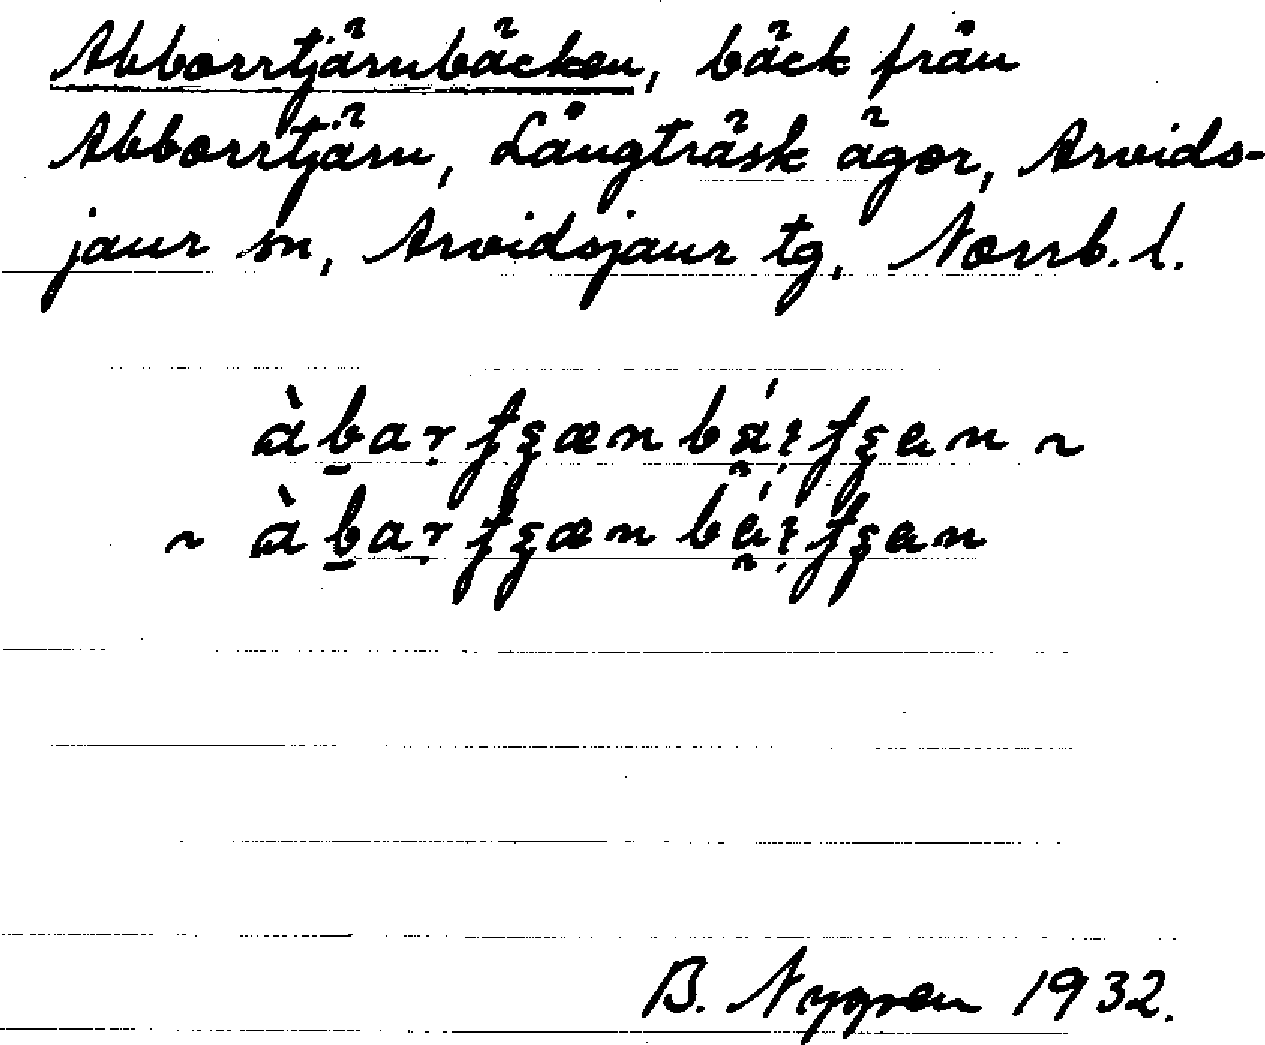 Abborrtjärnbäcken, bäck från
Abborrtjärn, Långträsk ägor, Arvids-
jaur sn, Arvidsjaur tg, Norrb. l.
B. Nygren 1932.